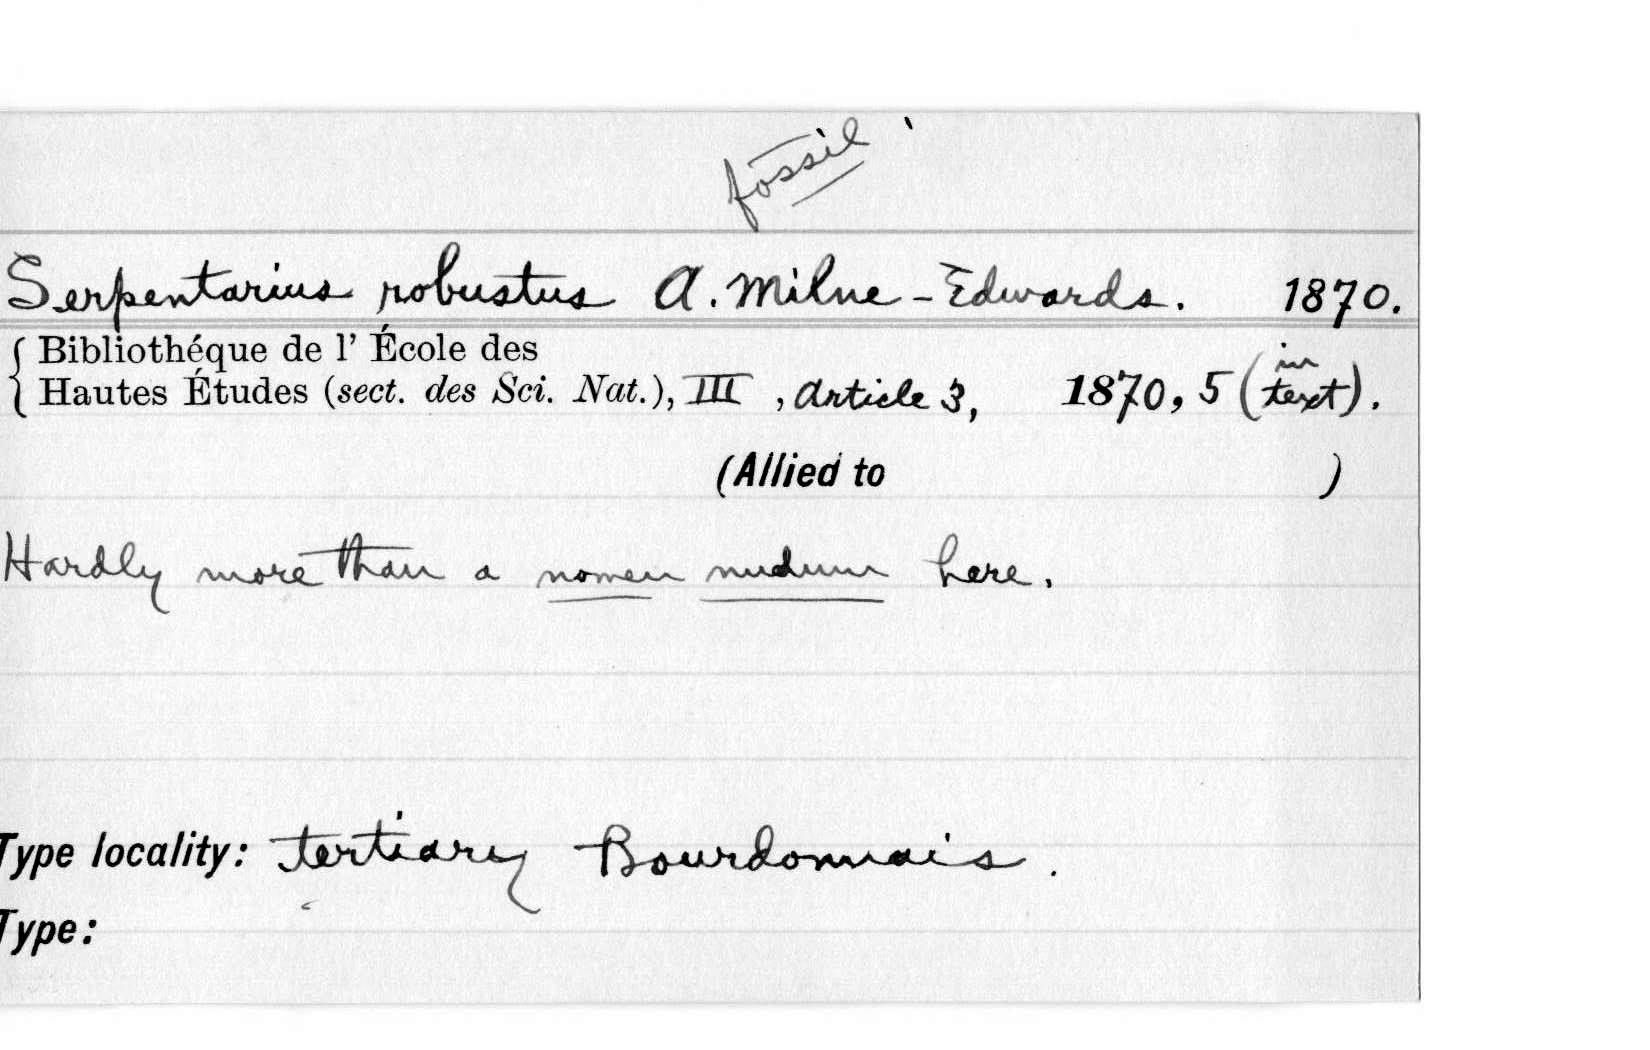 fossil
Serpentarius robustus A. Milne-Edwards. 1870.
Bibliothéque de l' École des
Hautes Études (sect. des Sci. Nat.), III, Article 3, 1870, 5 (in text).
(Allied to )
Hardly more than a nomen nudum here.
Type locality: tertiary Bourdonnais.
Type: